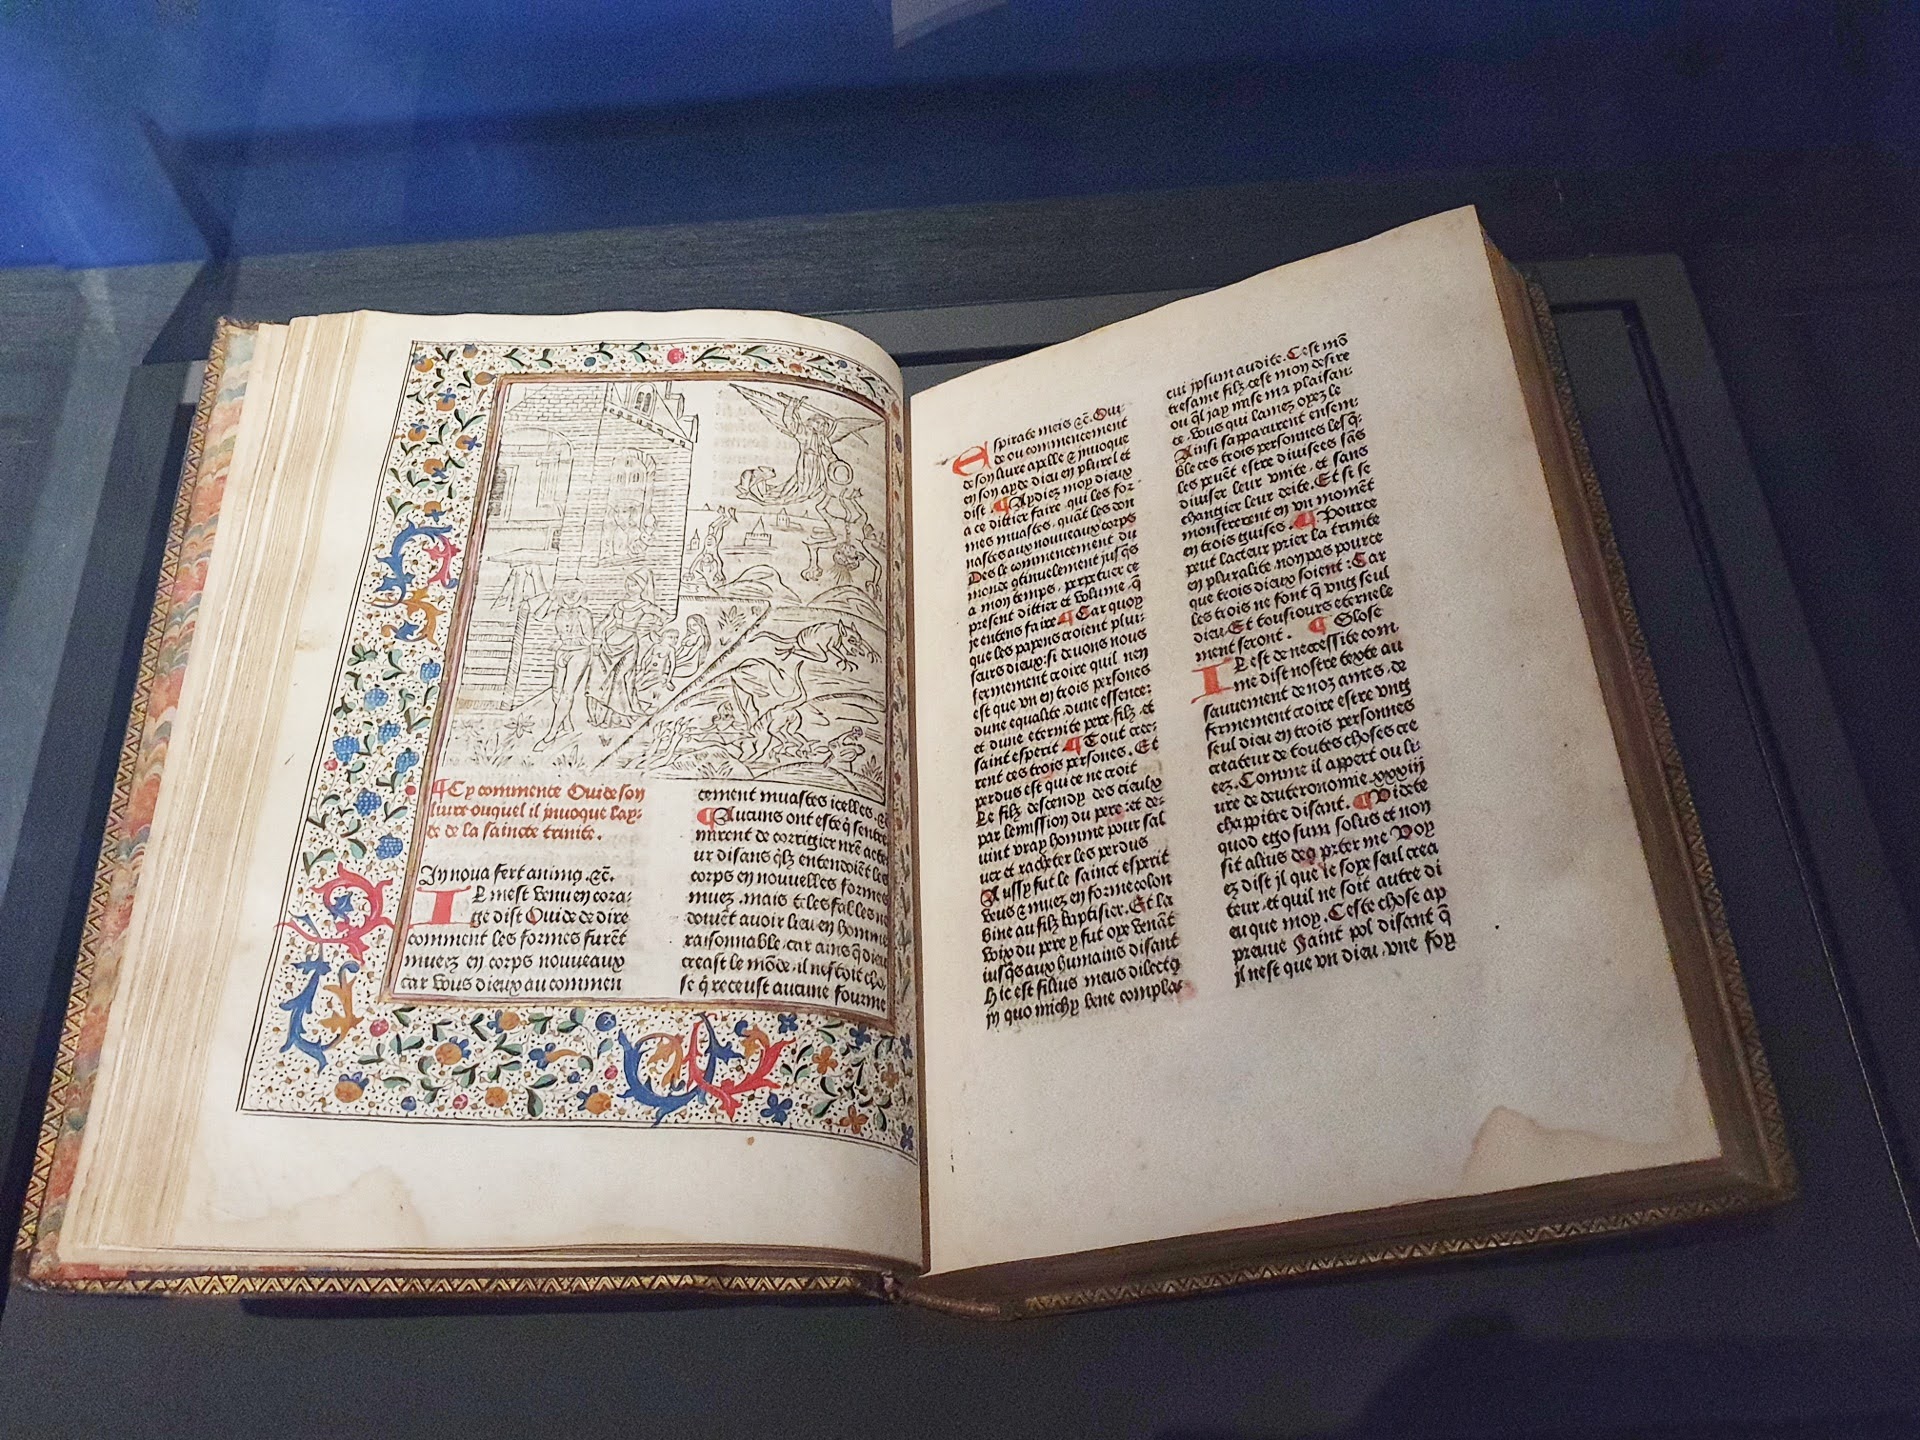 ¶ Cy commence Ouide son
liure ouquel il jnuoque lay-
de de la saincte trinite.
Jn noua fert animꝯ .⁊c̄.
IL mest venu en cora-
ge dist Ouide de dire
comment les formes furēt
muees en corps nouueaux
car vous dieux au commen
cement muastes icelles. ⁊
¶ Aucuns ont este q̄ sentre
mirent de corrigier nr̄e acte
ur disans q̄lz entendoiēt les
corps en nouuelles formes
muez. mais telles falles
doiuēt auoir lieu en homme
raisonnable. car ains q̄ dieu
creast le mōde. il nestoit cho
se q̄ receust aucune fourme
ASpirate meis ⁊c̄. Oui-
de ou commencement
de son liure apelle ⁊ jnuoque
en son ayde dieu en plurel et
dist. ¶ Aydiez moy dieux
a ce dittier faire. qui les for-
mes muastes. quāt les don
nastes aux nouueaux corps
Des le commencement du
monde ꝯtinuelement jusq̄s
a mon temps. perpetuer ce
present dittier et volume. q̄
je entens faire. ¶ Car quoy
que les payens croient plui-
seurs dieux: si deuons nous
fermement croire quil nen
est que vn en trois persones
dune equalite. dune essence:
et dune eternite pere. filz. et
saint esperit ¶ Tout cree-
rent ces trois persones. Et
perdus est qui ce ne croit
Le filz descendy des cieulx
par lemission du pere: et de-
uint vray homme pour sal
uer et racheter les perdus
Aussy fut le sainct esperit
veus ⁊ muez en forme colon
bine au filz baptisier. Et la
voix du pere y fut oye venāt
iusq̄s aux humains disant
Hic est filius meus dilectꝯ
jn quo michy bene compla-
cui jpsum audite. Cest mō
tresame filz. cest mon desire
ou q̄l jay mise ma plaisan-
ce. vous qui lamez oyez le
Ainsi sapparurent ensem-
ble ces trois personnes les q̄-
les peuēt estre diuisees sās
diuiser leur vnite. et sans
changier leur deite. Et si se
monstrerent en vn momēt
en trois guises. ¶ Pource
peut lacteur prier la trinite
en pluralite. non pas pource
que trois dieux soient: Car
les trois ne font q̄ vng seul
dieu. Et tousiours eternele
ment seront. ¶ Glose
IL est de necessite com
me dist nostre texte au
sauuement de noz ames. de
fermement croire estre vng
seul dieu en trois personnes
createur de toutes choses cre
eez. Comme il appert ou li-
ure de deuteronomie .xxxiij
chappitre disant. ¶ Videte
quod ego sum solus et non
sit alius deꝯ preter me Voy
ez dist jl que je soye seul crea
teur. et quil ne soit autre di
eu que moy. Ceste chose ap
preuue Saint pol disant q̄
jl nest que vn dieu. vne foy